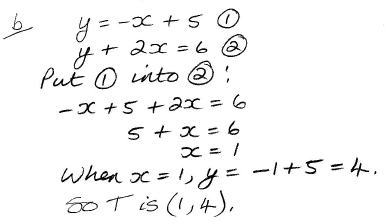 b y = -x + 5 ①
y + 2x = 6 ②
Put ① into ②:
-x + 5 + 2x = 6
5 + x = 6
x = 1
When x = 1, y = -1 + 5 = 4.
So T is (1, 4).